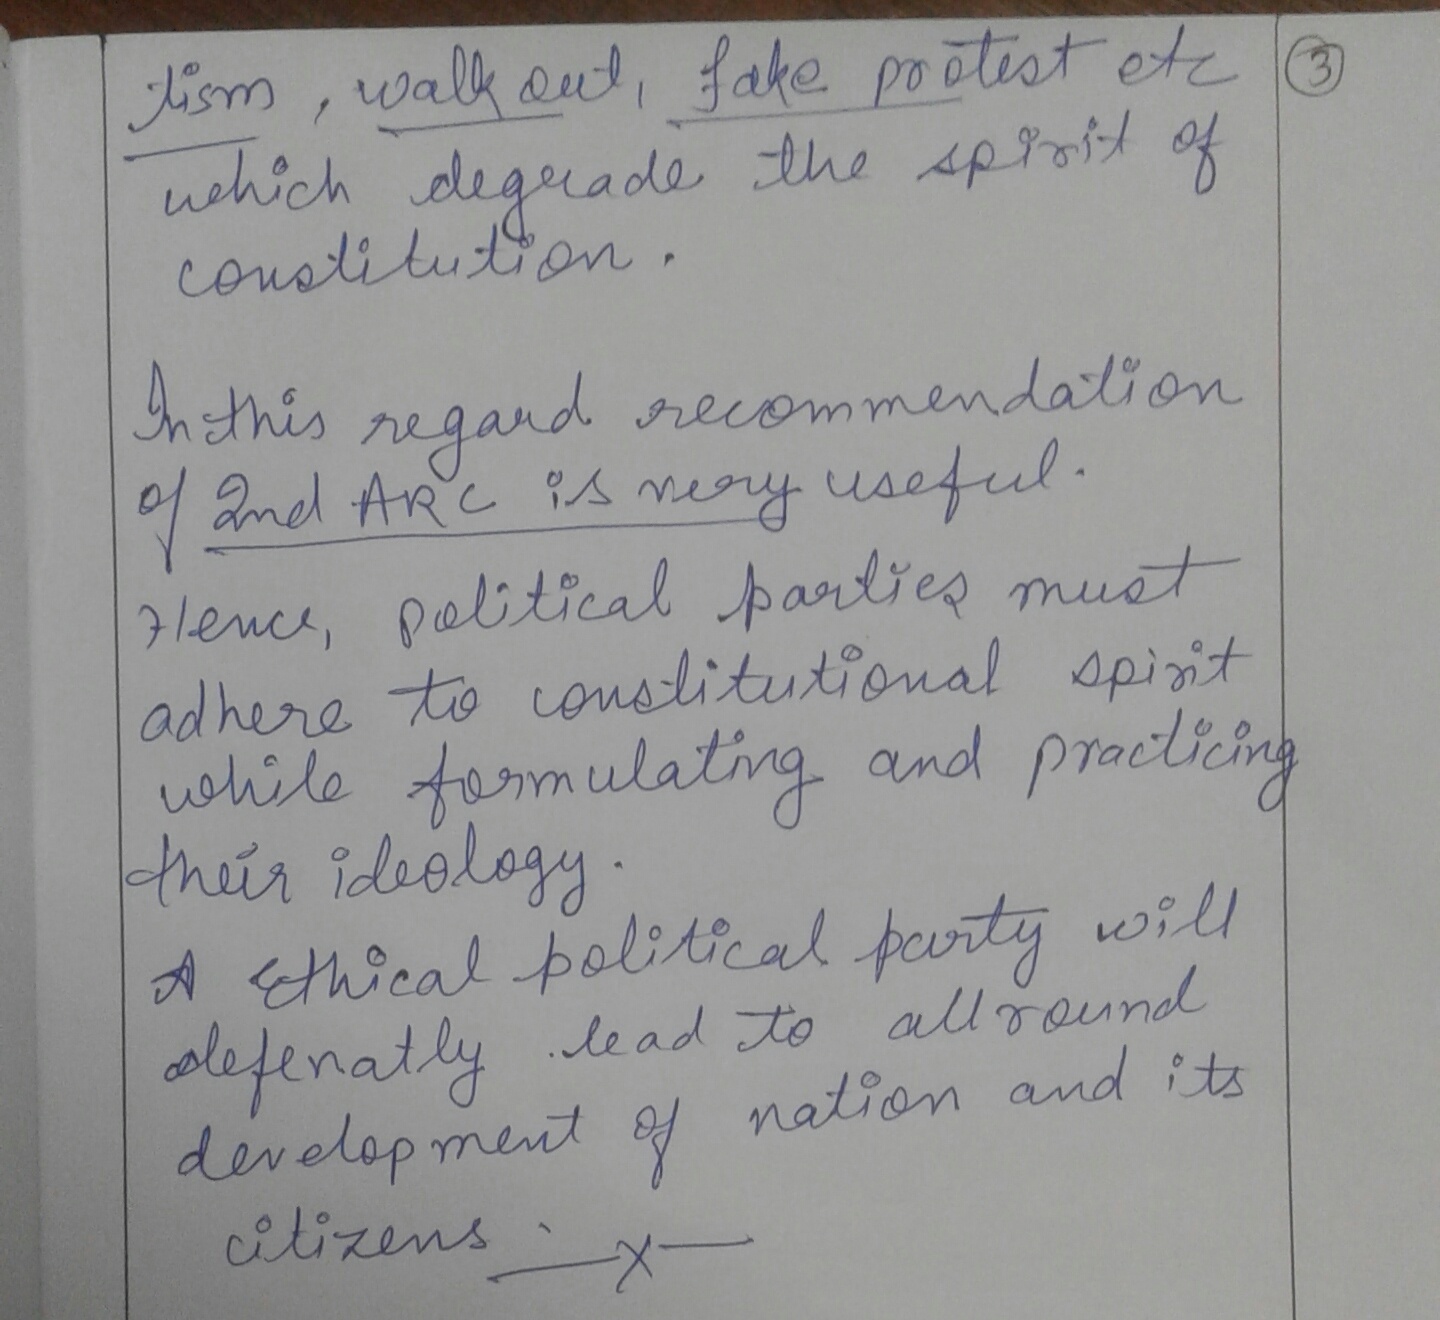 tism, walk out, fake protest etc
③
which degrade the spirit of
constitution.
In this regard recommendation
of 2nd ARC is very useful.
Hence, political parties must
adhere to constitutional spirit
while formulating and practicing
their ideology.
A Ethical political party will
defenatly lead to all round
development of nation and its
citizens.
—x—